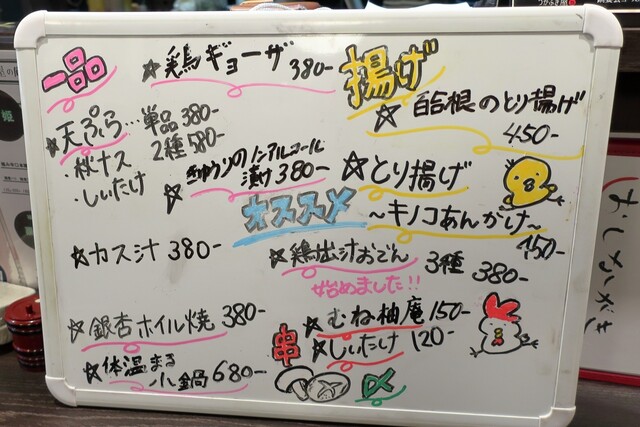 一品
☆鶏ギョーザ 380-
☆天ぷら…単品 380-
2種 580-
・秋ナス
・しいたけ
☆きゅうりのノンアルコール
漬け 380-
☆カス汁 380-
☆銀杏ホイル焼 380-
☆体温まる
小鍋 680-
揚げ
☆自然根のとり揚げ
450-
☆とり揚げ
~キノコあんかけ~
450-
オススメ
☆鶏出汁おでん 3種 380-
始めました!!
串
☆むね柚庵 150-
☆しいたけ 120-
〆
おしながき